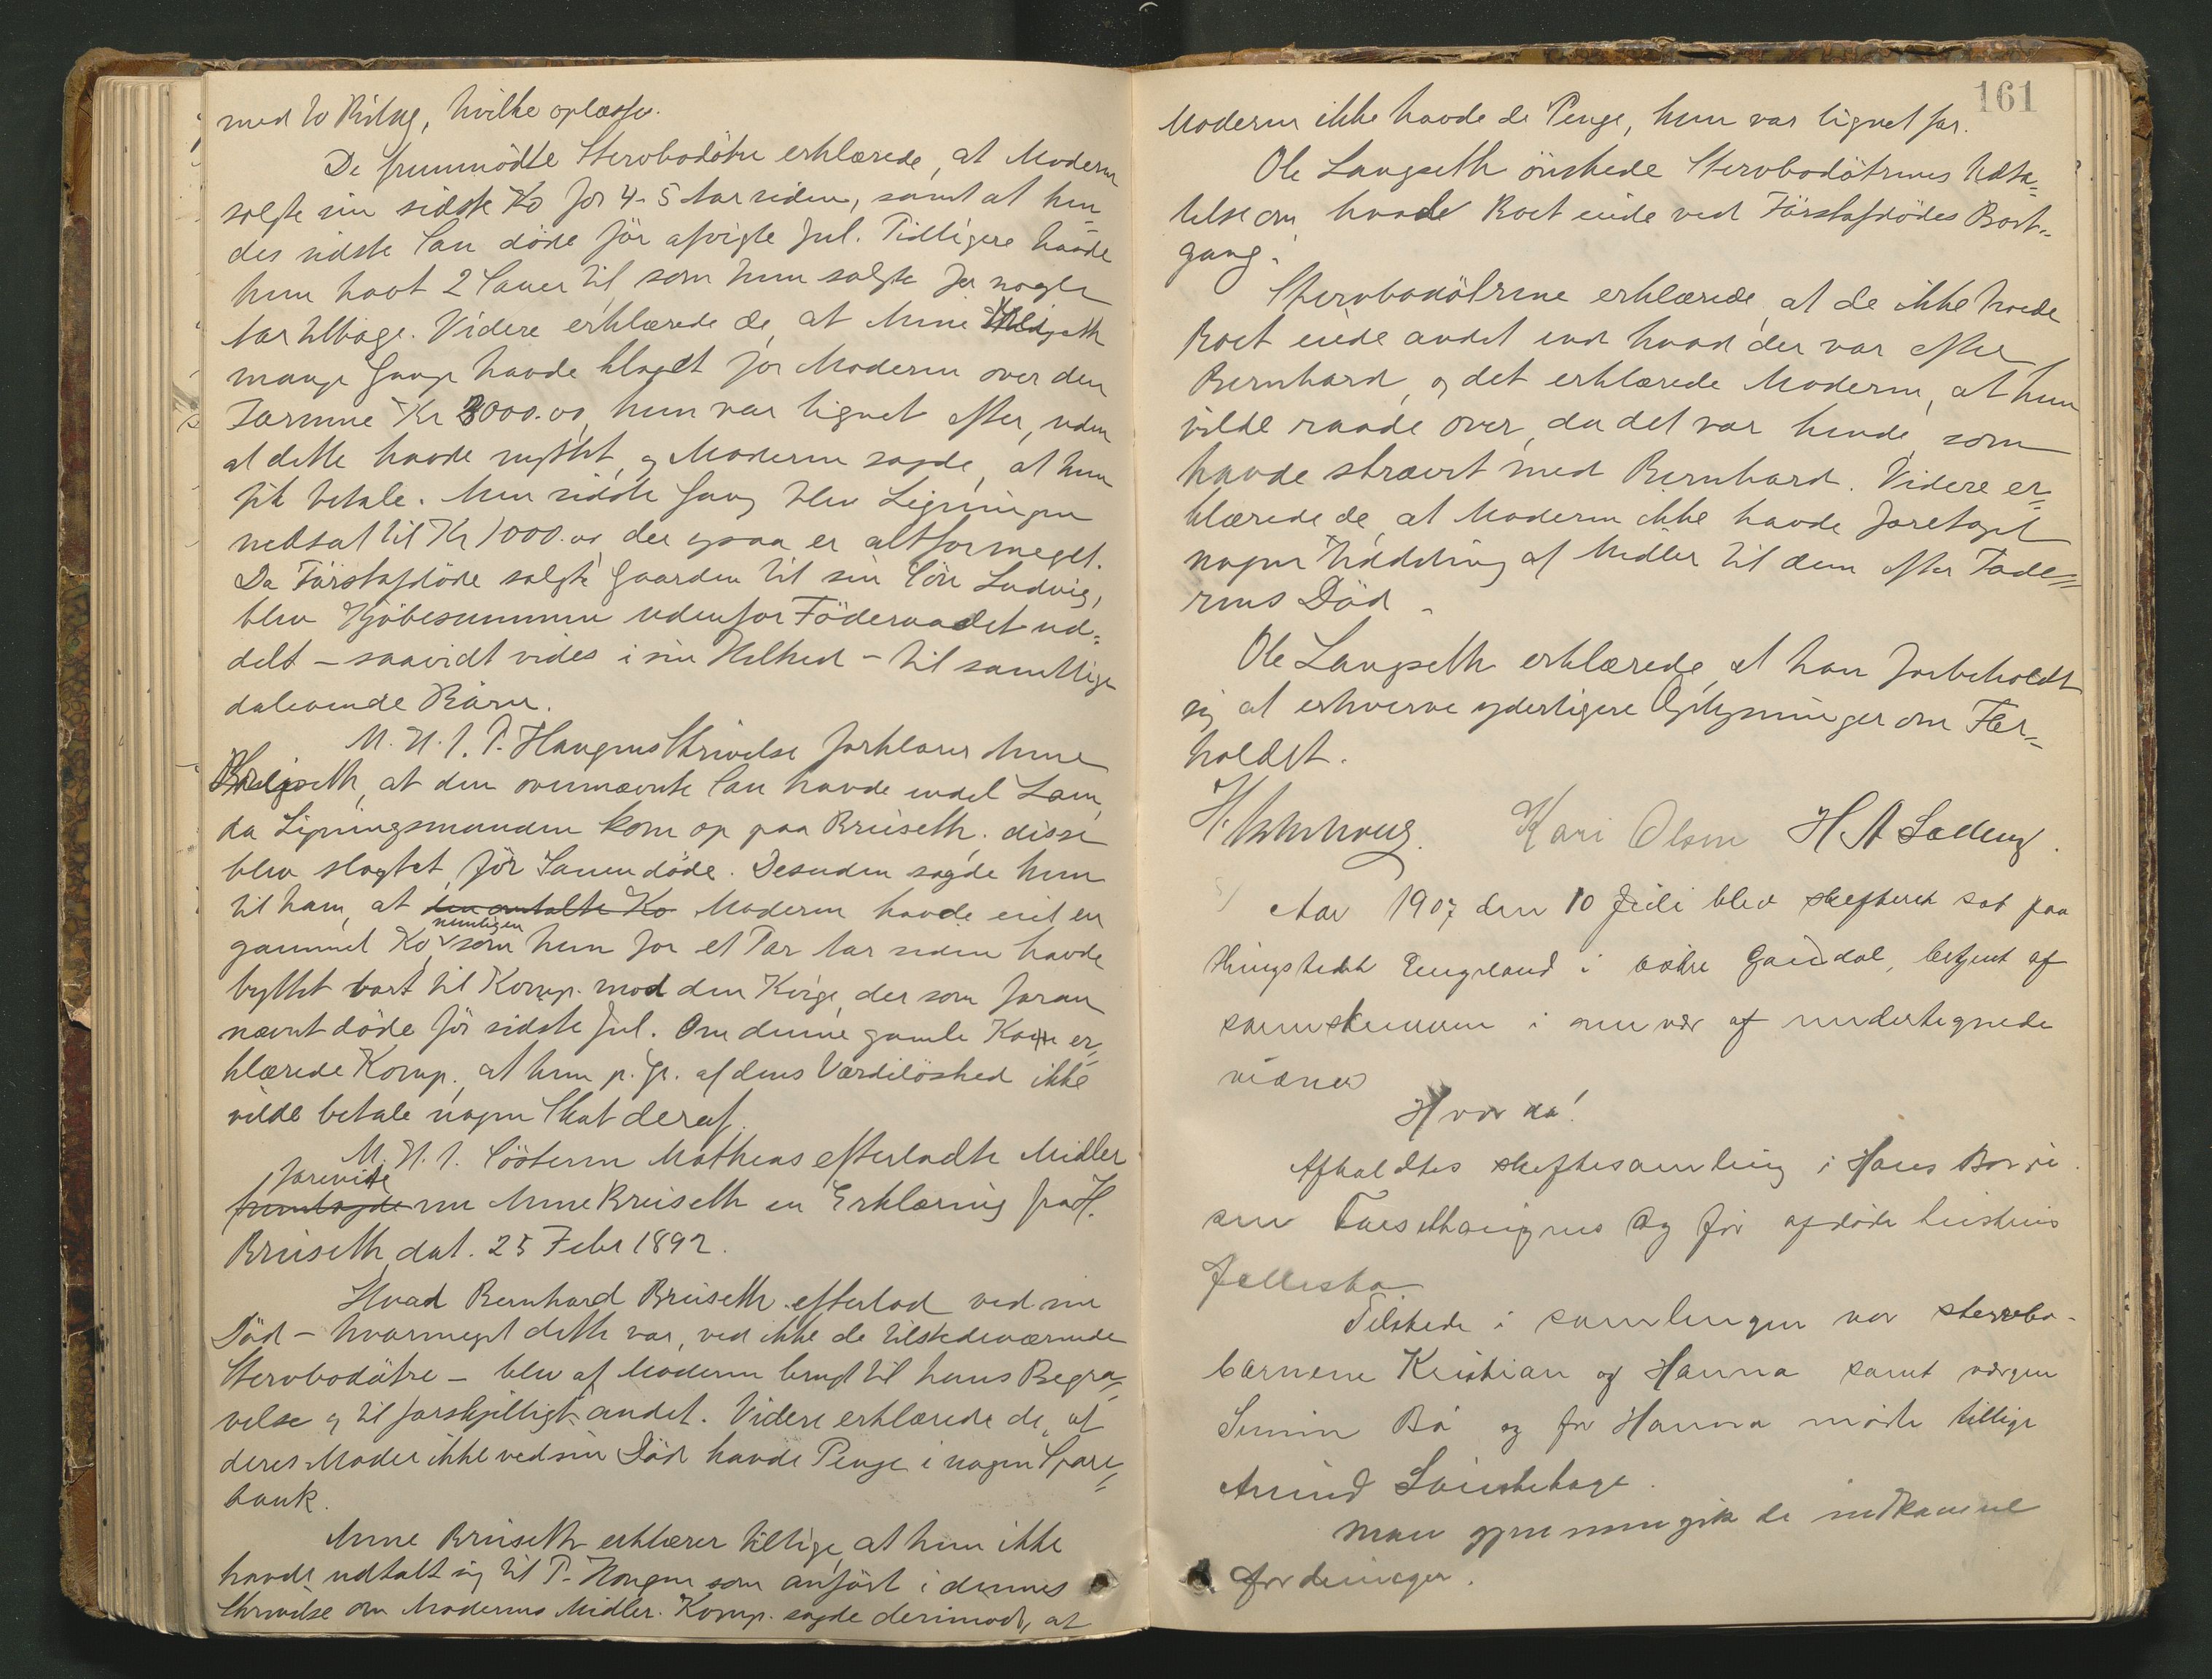 med to Bilag, hvilke oplæstes.
De fremmødte Stervbodøtre erklærede, at Moderen
solgte sin sidste Ko for 4-5 Aar siden, samt at hen-
des sidste Sau døde før afvigte Jul. Tidligere havde
hun havt 2 Sauer til, som hun solgte for nogle
Aar tilbage. Videre erklærede de, at Anne
mange Gange havde klaget for Moderen over den
Formue Kr 3000.00, hun var lignet efter, uden
at dette havde nyttet, og Moderen sagde, at hun
fik betale. Men sidste Gang blev Ligningen
nedsat til Kr 1000.00, der ogsaa er altformeget.
Da Førstafdøde solgte Gaarden til sin Søn Ludvig,
blev Kjøbesummen udenfor Føderaadet ud-
delt – saavidt vides i sin Helhed – til samtlige
dalevende Børn.
M. H. t. P. Haugens Skrivelse forklarer Anne
Bruseth, at den ovennævnte Sau havde endel Lam,
da Ligningsmanden kom op paa Bruseth; disse
blev slagtet, før Sauen døde. Desuden sagde hun
til ham, at den omtalte Ko Moderen havde eiet en
nemligen
gammel Ko, som hun for et Par Aar siden havde
byttet bort til Komp. mod den Kvige, der som foran
nævnt døde før sidste Jul. Om denne gamle Ko er-
klærede Komp., at hun p. Gr. af dens Værdiløshed ikke
vilde betale nogen Skat deraf.
M. H. t. Søsteren Matheas efterladte Midler
foreviste
fremlagde nu Anne Bruseth en Erklæring fra H.
Bruseth, dat. 25 Febr 1892.
Hvad Bernhard Bruseth efterlod ved sin
Død – hvormeget dette var, ved ikke de tilstedeværende
Stervbodøtre – blev af Moderen brugt til hans Begra-
velse og til forskjelligt andet. Videre erklærede de, at
deres Moder ikke ved sin Død havde Penge i nogen Spare-
bank.
Anne Bruseth erklærer tillige, at hun ikke
havde udtalt sig til P. Haugen som anført i dennes
Skrivelse om Moderens Midler. Komp. sagde derimod, at
161
Moderen ikke havde de Penge, hun var lignet for.
Ole Langseth ønskede Stervbodøtrenes Udta-
telse om, hvad Boet eiede ved Førstafdødes Bort-
gang.
Stervbodøtrene erklærede, at de ikke troede
Boet eiede andet end hvad der var efter
Bernhard, og det erklærede Moderen, at hun
vilde raade over, da det var hende, som
havde strævet med Bernhard. Videre er-
klærede de, at Moderen ikke havde foretaget
nogen Uddeling af Midler til dem efter Fade-
rens Død.
Ole Langseth erklærede, at han forbeholdt
sig at erhverve yderligere Oplysninger om For-
holdet.
Kari Olsen H A
Aar 1907 den 10 Juli blev skifteret sat paa
Thingstedet Engeland i østre Gausdal, betjent af
sorenskriveren i nærvær af undertegnede
vidner
Hvorda!
Afholdtes skiftesamling i Hans
og før afdøde hustrus
fællesbo
Tilstede i samlingen var stervbo-
børnene Kristian og Hanna samt værgen
Simen Bø og for Hanna mødte tillige
Amund
Man gjennemgik de indkomne
fordringer.